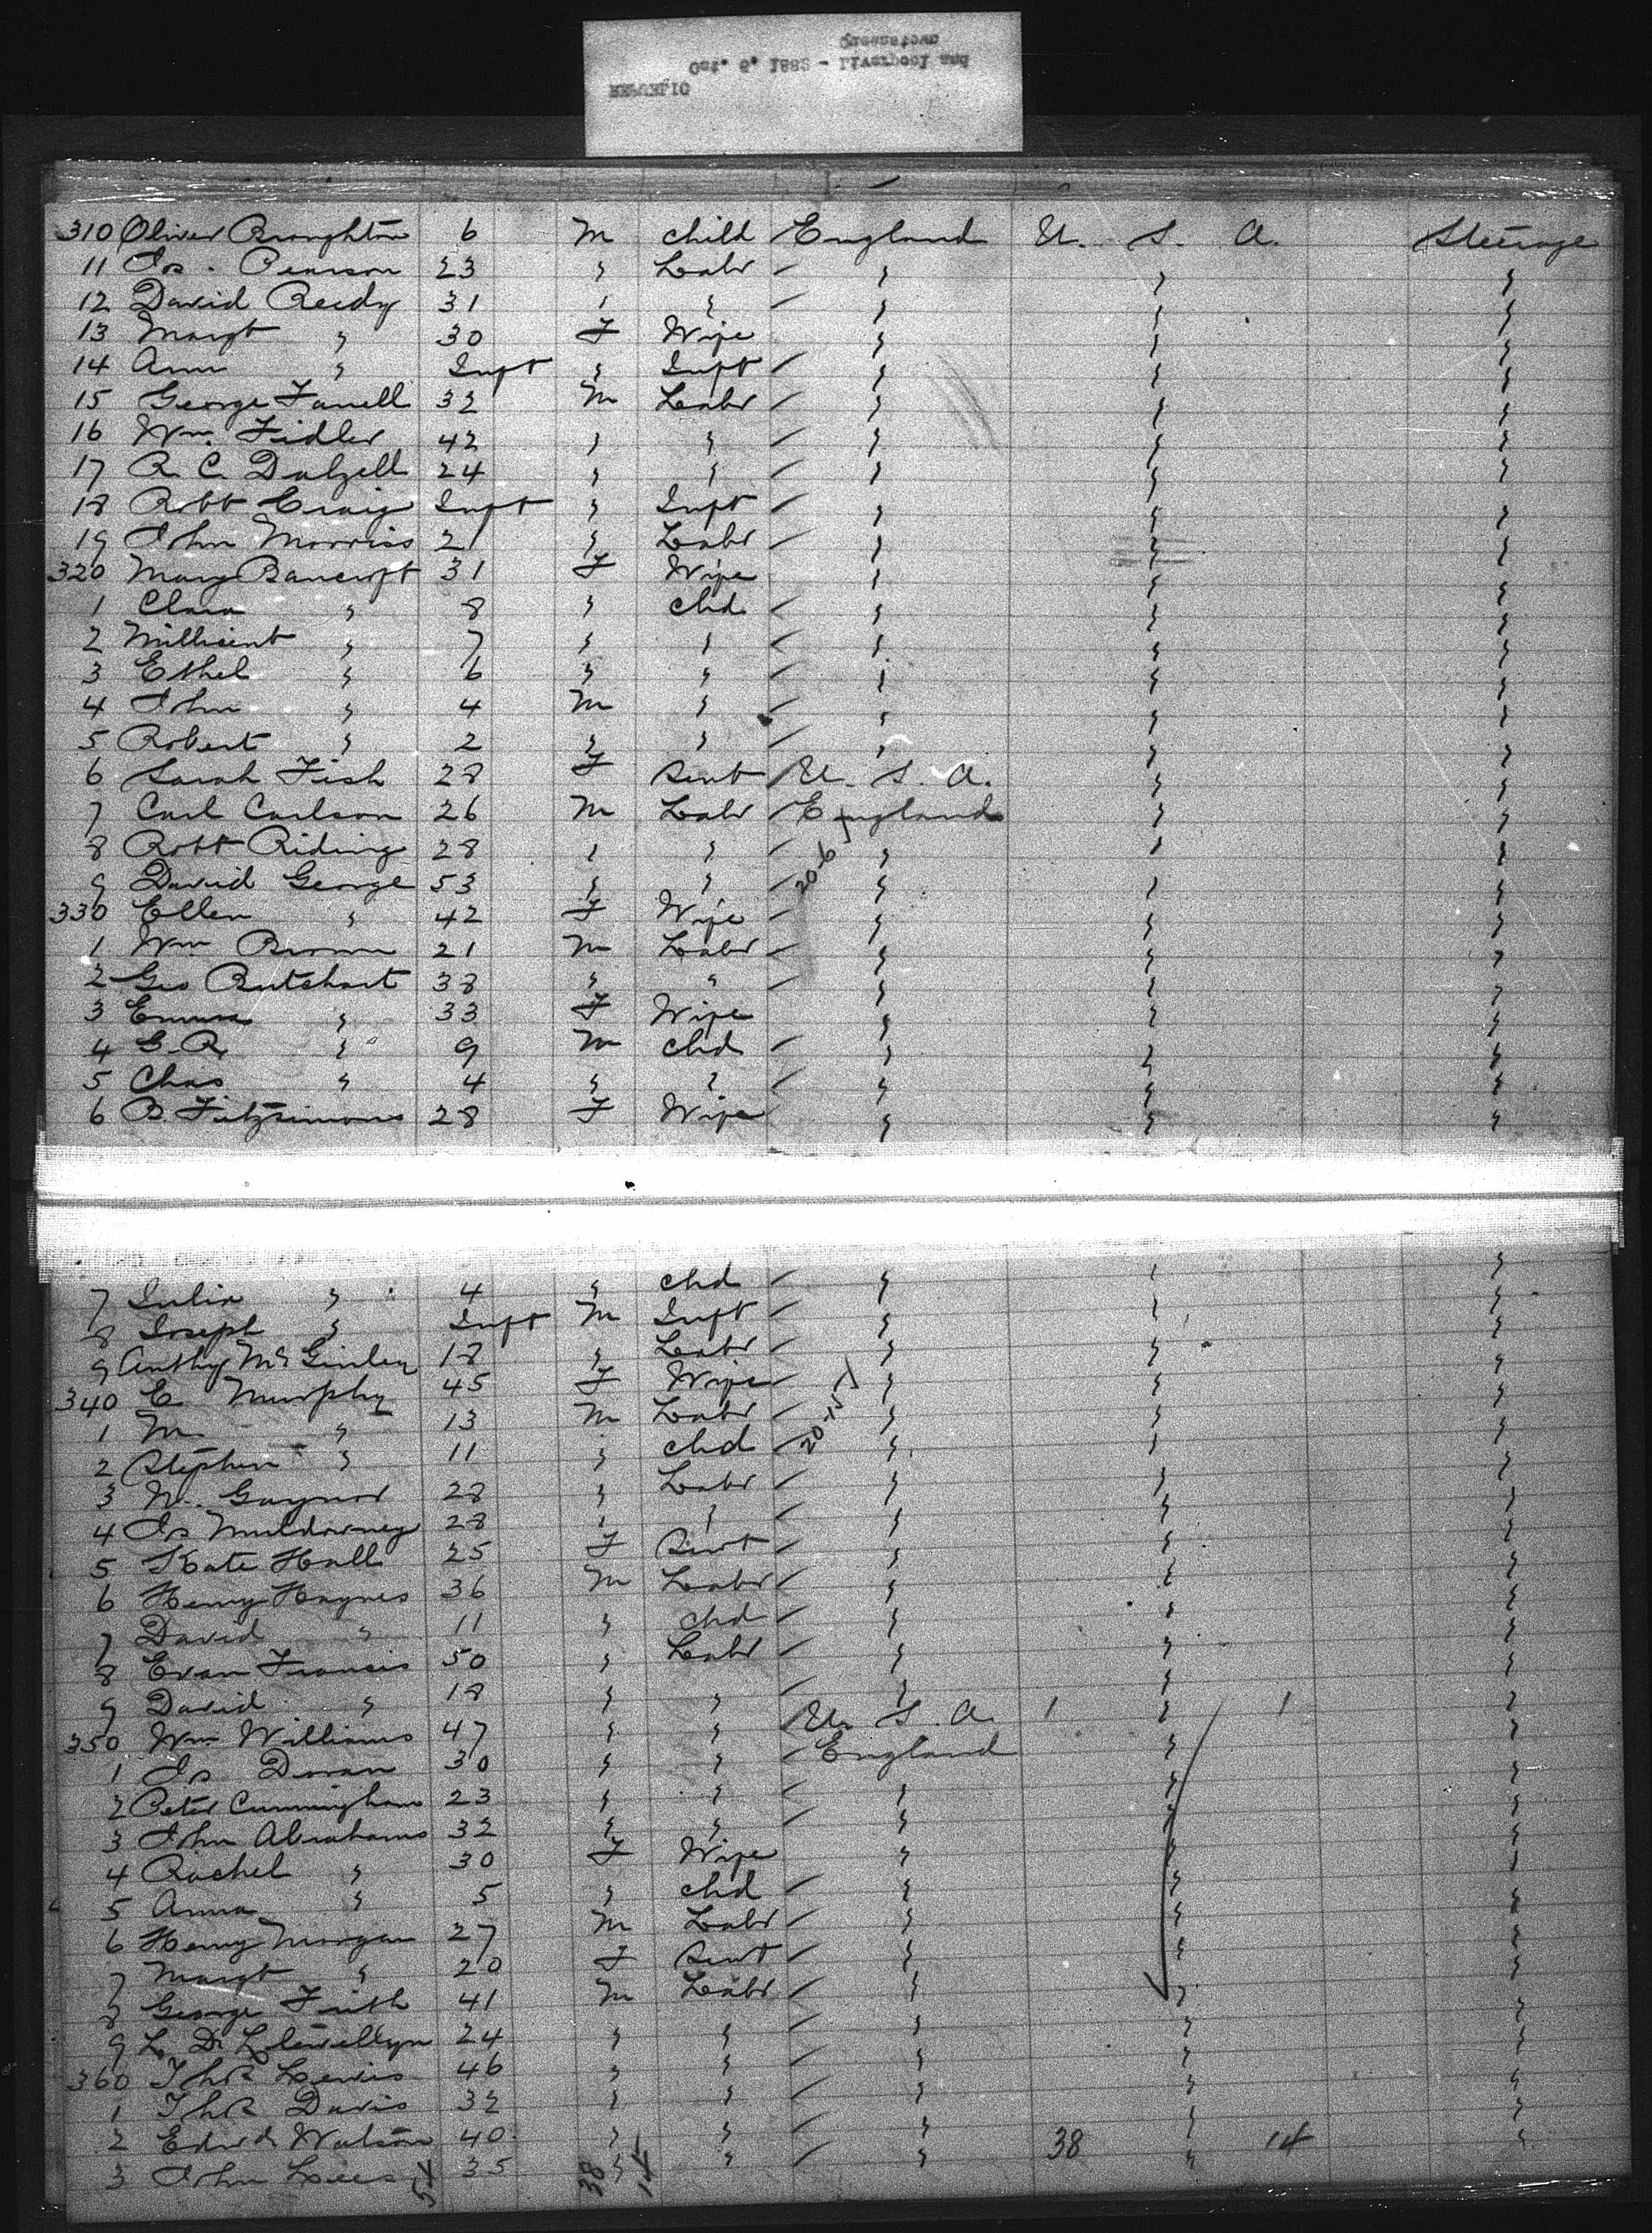 REPUBLIC
Oct. 6, 1882 - Liverpool and
Queenstown
310 Oliver Broughton 6 M child England U. S. A. Steerage
11 Js. Pearson 23 " Labr " " "
12 David Reedy 31 " " " " "
13 Margt " 30 F Wife " " "
14 Ann " Inft " Inft " " "
15 George Farrell 32 M Labr " " "
16 Wm. Fidler 42 " " " " "
17 R. C. Dalzell 24 " " " " "
18 Robt Craig Inft " Inft " " "
19 John Morriss 21 " Labr " " "
320 Mary Bancroft 31 F Wife " " "
1 Clara " 8 " chd " " "
2 Millicent " 7 " " " " "
3 Ethel " 6 " " " " "
4 John " 4 M " " " "
5 Robert " 2 " " " " "
6 Sarah Fish 28 F Servt U. S. A. " "
7 Carl Carlson 26 M Labr England " "
8 Robt Riding 28 " " " " "
9 David George 53 " " 20-6 " " "
330 Ellen " 42 F Wife " " "
1 Wm Brown 21 M Labr " " "
2 Geo Butchart 38 " " " " "
3 Emma " 33 F Wife " " "
4 G. R. " 9 M chd " " "
5 Chas " 4 " " " " "
6 B. Fitzsimons 28 F Wife " " "
7 Julia " 4 " chd " " "
8 Joseph " Inft M Inft " " "
9 Anthy McGinley 18 " Labr " " "
340 E. Murphy 45 F Wife " " "
1 M " 13 M Labr 20-15 " " "
2 Stephen " 11 " chd " " "
3 Gaynor 28 " Labr " " "
4 Js Muldowney 28 " " " " "
5 Kate Hall 25 F Servt " " "
6 Henry Haynes 36 M Labr " " "
7 David " 11 " chd " " "
8 Evan Francis 50 " Labr " " "
9 David " 18 " " " " "
350 Wm Williams 47 " " U. S. A. 1 " 1 "
1 Js Doran 30 " " England " "
2 Peter Cunningham 23 " " " " "
3 John Abrahams 32 " " " " "
4 Rachel " 30 F Wife " " "
5 Anna " 5 " chd " " "
6 Henry Morgan 27 M Labr " " "
7 Margt " 20 F Servt " " "
8 George Frith 41 M Labr " " "
9 L. D. Llewellyn 24 " " " " "
360 Thos Lewis 46 " " " " "
1 Thos Davis 32 " " " " "
2 Edwd Watson 40 " " " 38 " 14 "
3 John Lees 35 " " " "
38 14